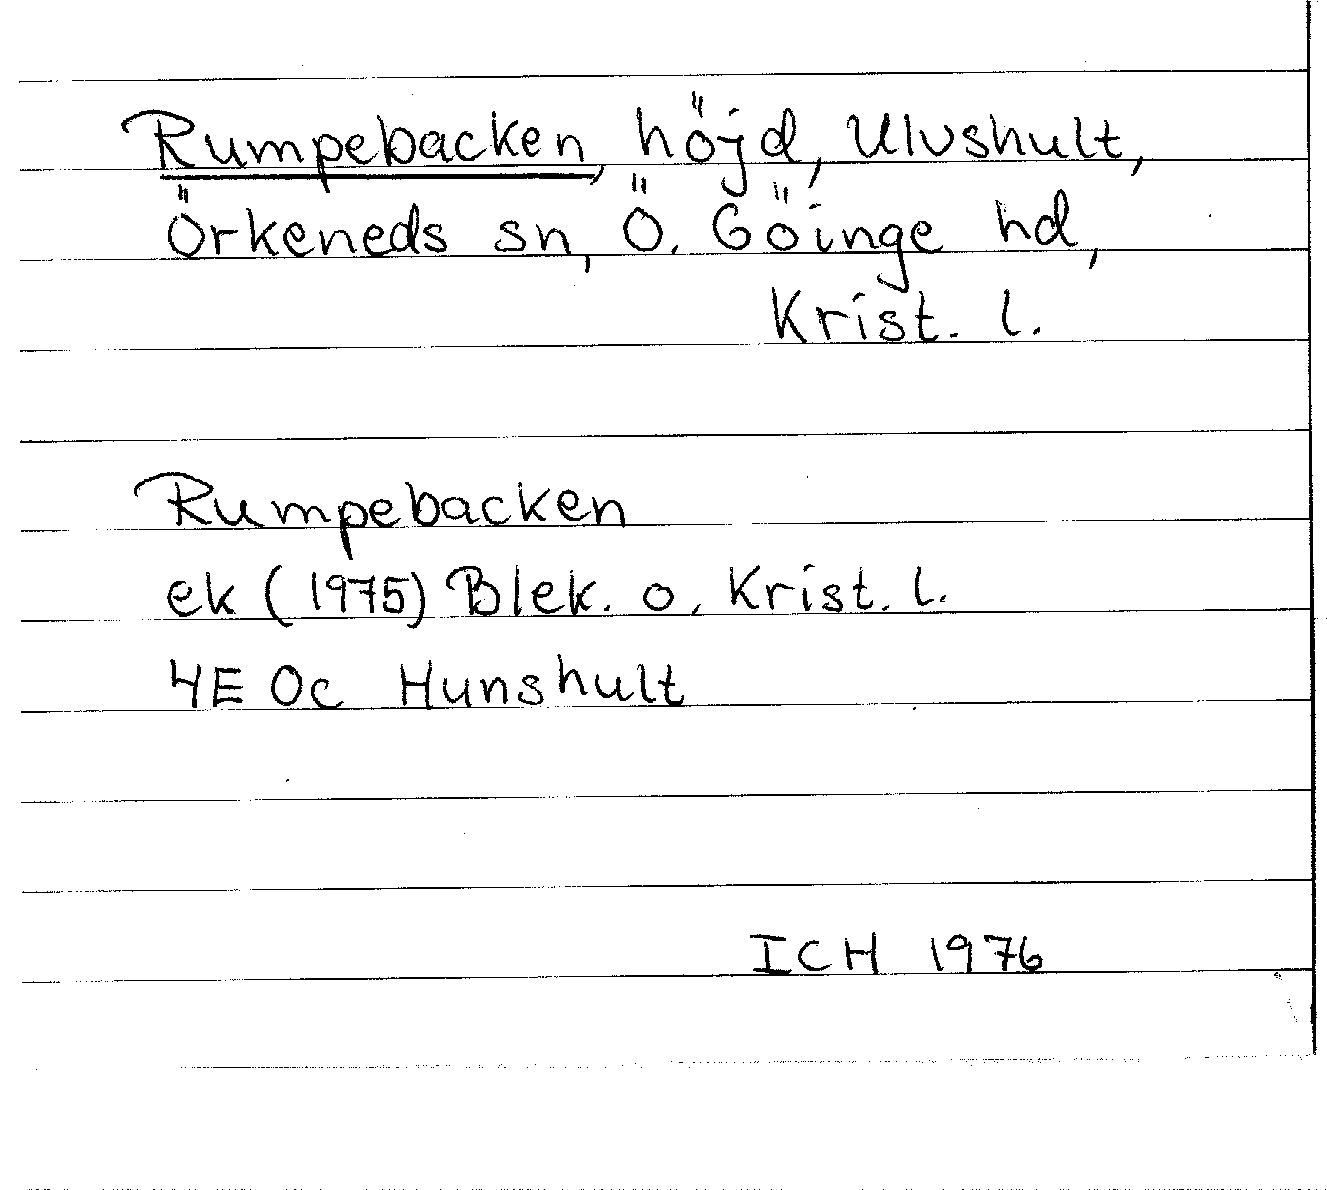 Rumpebacken, höjd, Ulvshult,
Örkeneds sn, Ö. Göinge hd,
Krist. l.
Rumpebacken
ek (1975) Blek. o. Krist. l.
4E 0c Hunshult
ICH 1976